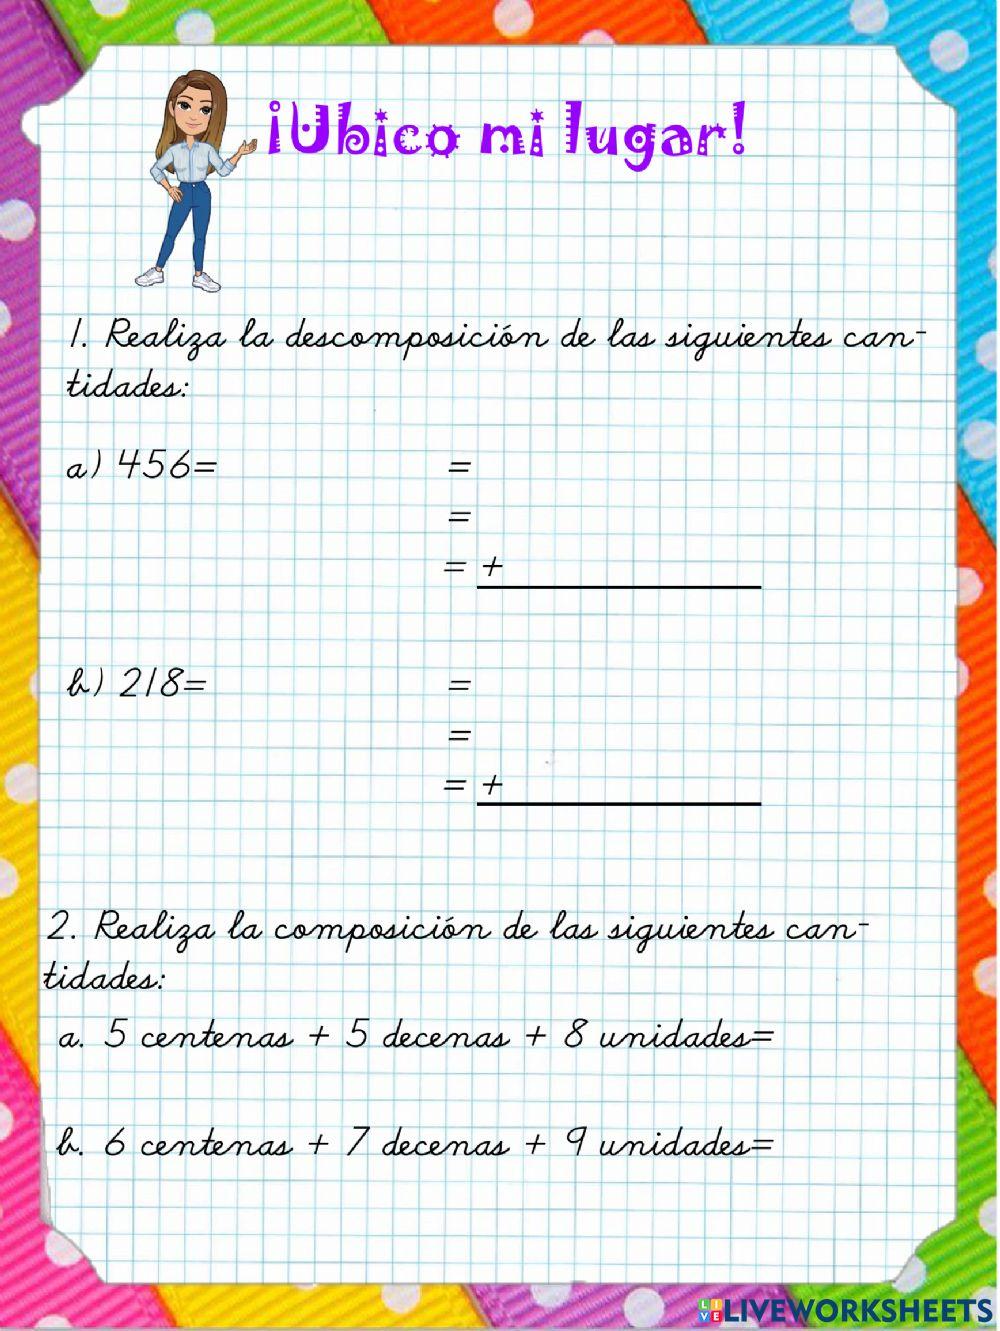 ¡Ubico mi lugar!
1. Realiza la descomposición de las siguientes can-
tidades:
a) 456= =
=
= +
b) 218= =
=
= +
2. Realiza la composición de las siguientes can-
tidades:
a. 5 centenas + 5 decenas + 8 unidades=
b. 6 centenas + 7 decenas + 9 unidades=
LIVE LIVEWORKSHEETS